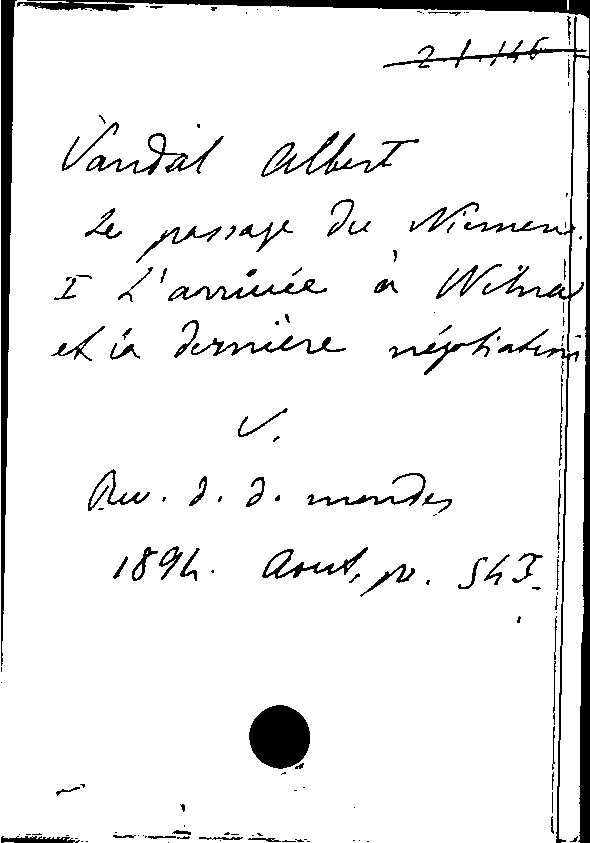 2 1.146
Vandal Albert
Le passage du Niemen.
I L'arrivée à Wilna
et la dernière négotiation
V.
Rev. d. d. mondes
1894. Aout, p.